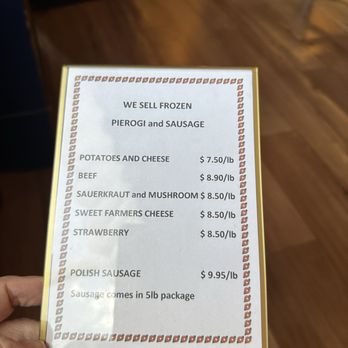 WE SELL FROZEN
PIEROGI and SAUSAGE
POTATOES AND CHEESE $ 7.50/lb
BEEF $ 8.90/lb
SAUERKRAUT and MUSHROOM $ 8.50/lb
SWEET FARMERS CHEESE $ 8.50/lb
STRAWBERRY $ 8.50/lb
POLISH SAUSAGE $ 9.95/lb
Sausage comes in 5lb package